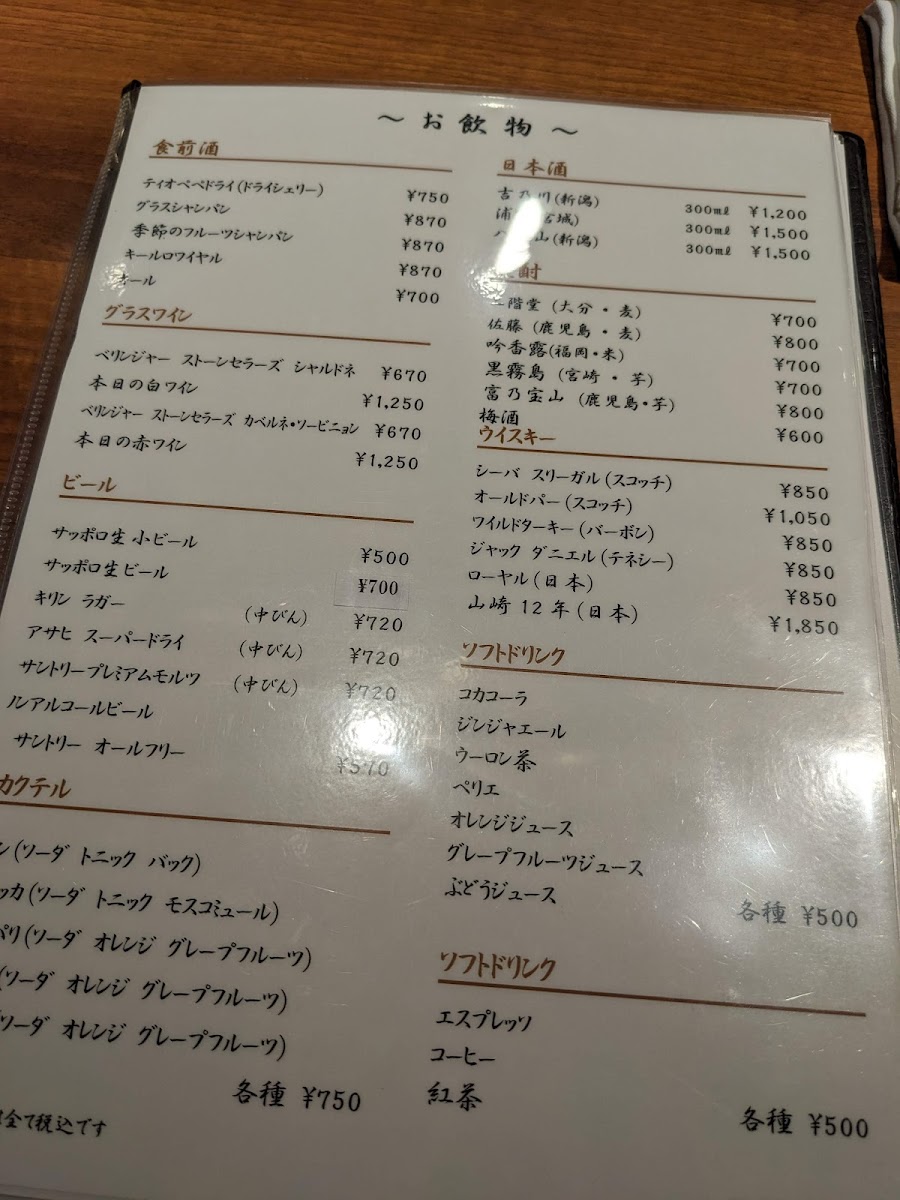 ～お飲物～
食前酒
ティオペペドライ(ドライシェリー) ¥750
グラスシャンパン ¥870
季節のフルーツシャンパン ¥870
キールロワイヤル ¥870
ール ¥700
グラスワイン
ベリンジャー ストーンセラーズ シャルドネ ¥670
本日の白ワイン ¥1,250
ベリンジャー ストーンセラーズ カベルネ・ソービニョン ¥670
本日の赤ワイン ¥1,250
ビール
サッポロ生小ビール ¥500
サッポロ生ビール ¥700
キリン ラガー (中びん) ¥720
アサヒ スーパードライ (中びん) ¥720
サントリープレミアムモルツ (中びん) ¥720
ノンアルコールビール
サントリー オールフリー ¥570
カクテル
ン(ソーダ トニック バック)
ッカ(ソーダ トニック モスコミュール)
パリ(ソーダ オレンジ グレープフルーツ)
(ソーダ オレンジ グレープフルーツ)
ソーダ オレンジ グレープフルーツ)
各種 ¥750
全て税込です
日本酒
吉乃川(新潟) 300mℓ ¥1,200
浦 宮城) 300mℓ ¥1,500
山(新潟) 300mℓ ¥1,500
酎
二階堂(大分・麦) ¥700
佐藤(鹿児島・麦) ¥800
吟香露(福岡・米) ¥700
黒霧島(宮崎・芋) ¥700
富乃宝山(鹿児島・芋) ¥800
梅酒 ¥600
ウイスキー
シーバ スリーガル(スコッチ) ¥850
オールドパー(スコッチ) ¥1,050
ワイルドターキー(バーボン) ¥850
ジャック ダニエル(テネシー) ¥850
ローヤル(日本) ¥850
山崎12年(日本) ¥1,850
ソフトドリンク
コカコーラ
ジンジャエール
ウーロン茶
ペリエ
オレンジジュース
グレープフルーツジュース
ぶどうジュース
各種 ¥500
ソフトドリンク
エスプレッソ
コーヒー
紅茶
各種 ¥500